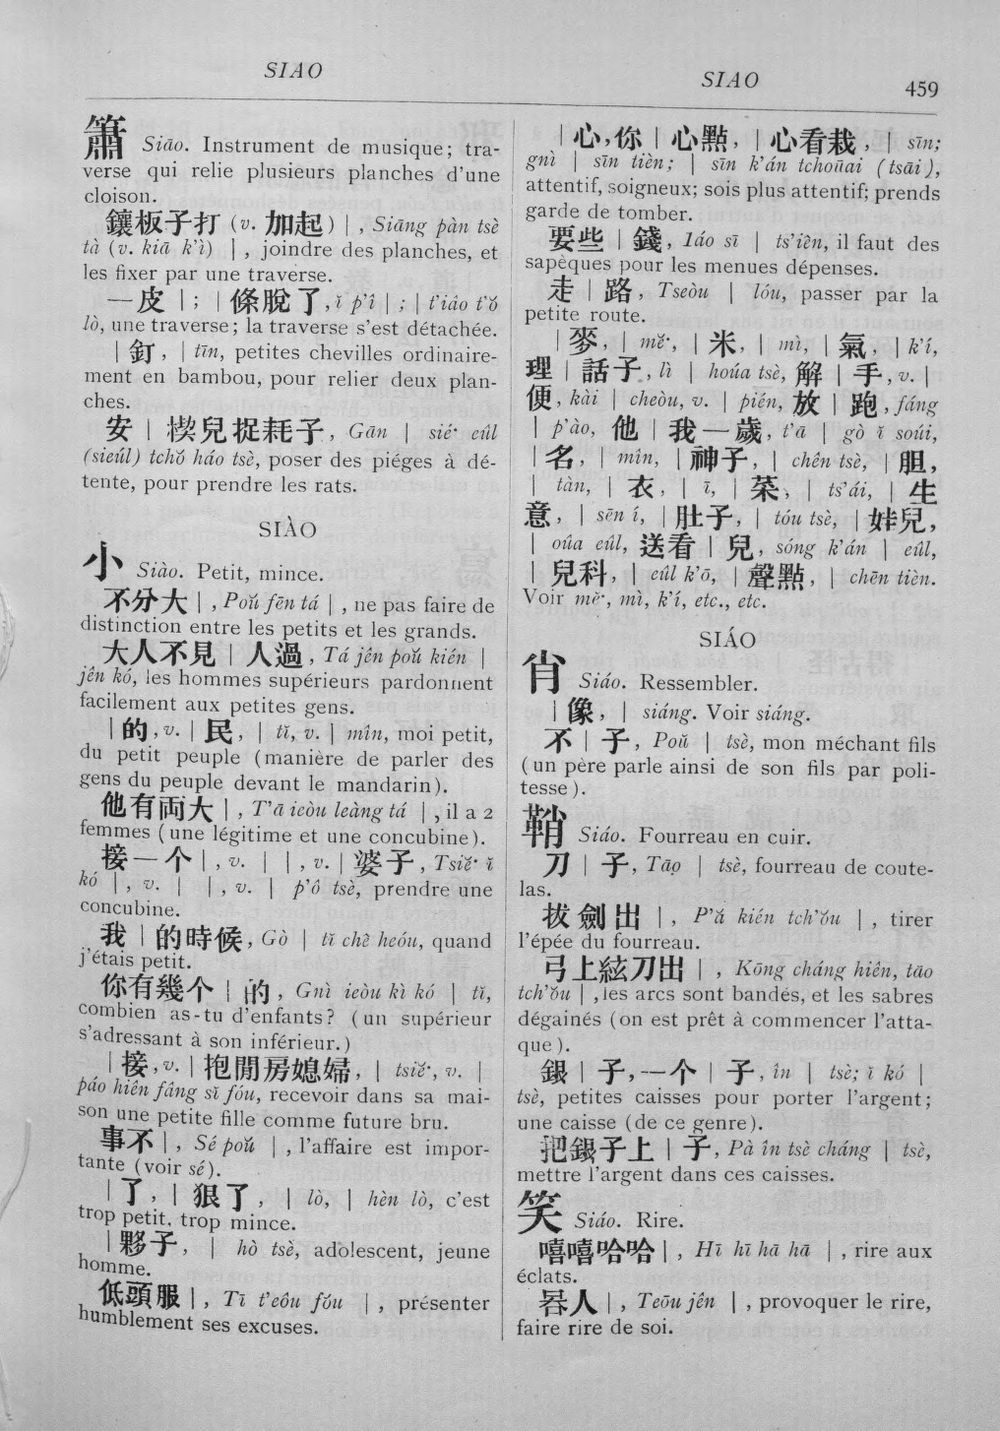 SIAO
SIAO
459
簫 Siāo. Instrument de musique; tra-
verse qui relie plusieurs planches d'une
cloison.
鑲板子打 (v. 加起) | , Siāng pàn tsè
tà (v. kiā k'ì) | , joindre des planches, et
les fixer par une traverse.
一皮 | ; | 條脫了, ǐ p'î | ; | t'iâo t'ǒ
lò, une traverse; la traverse s'est détachée.
| 釘, | tīn, petites chevilles ordinaire-
ment en bambou, pour relier deux plan-
ches.
安 | 楔兒捉耗子, Gān | sié· eûl
(sieúl) tchǒ háo tsè, poser des piéges à dé-
tente, pour prendre les rats.
SIÀO
小 Siào. Petit, mince.
不分大 | , Poǔ fēn tá | , ne pas faire de
distinction entre les petits et les grands.
大人不見 | 人過, Tá jên poǔ kién |
jên kó, les hommes supérieurs pardonnent
facilement aux petites gens.
| 的, v. | 民, | tǐ, v. | mîn, moi petit,
du petit peuple (manière de parler des
gens du peuple devant le mandarin).
他有両大 | , T'ā ieòu leàng tá | , il a 2
femmes (une légitime et une concubine).
接一个 | , v. | | , v. | 婆子, Tsiě· ǐ
kó | , v. | | , v. | p'ô tsè, prendre une
concubine.
我 | 的時候, Gò | tǐ chê heóu, quand
j'étais petit.
你有幾个 | 的, Gnì ieòu kì kó | tǐ,
combien as-tu d'enfants? (un supérieur
s'adressant à son inférieur.)
| 接, v. | 抱閒房媳婦, | tsiě·, v. |
páo hiên fâng sǐ fóu, recevoir dans sa mai-
son une petite fille comme future bru.
事不 | , Sé poǔ | , l'affaire est impor-
tante (voir sé).
| 了, | 狠了, | lò, | hèn lò, c'est
trop petit, trop mince.
| 夥子, | hò tsè, adolescent, jeune
homme.
低頭服 | , Tī t'eôu fǒu | , présenter
humblement ses excuses.
| 心, 你 | 心點, | 心看栽, | sīn;
gnì | sīn tièn; | sīn k'án tchoūai (tsāi),
attentif, soigneux; sois plus attentif; prends
garde de tomber.
要些 | 錢, Iáo sī | ts'iên, il faut des
sapèques pour les menues dépenses.
走 | 路, Tseòu | lóu, passer par la
petite route.
| 麥, | mě·, | 米, | mì, | 氣, | k'í,
理 | 話子, lì | hoúa tsè, 解 | 手, v. |
便, kài | cheòu, v. | pién, 放 | 跑, fáng
| p'ào, 他 | 我一歲, t'ā | gò ǐ soúi,
| 名, | mîn, | 神子, | chên tsè, | 胆,
| tàn, | 衣, | ī, | 菜, | ts'ái, | 生
意, | sēn í, | 肚子, | tóu tsè, | 娃兒,
| oûa eûl, 送看 | 兒, sóng k'án | eûl,
| 兒科, | eûl k'ō, | 聲點, | chēn tièn.
Voir mě·, mì, k'í, etc., etc.
SIÁO
肖 Siáo. Ressembler.
| 像, | siáng. Voir siáng.
不 | 子, Poǔ | tsè, mon méchant fils
(un père parle ainsi de son fils par poli-
tesse).
鞘 Siáo. Fourreau en cuir.
刀 | 子, Tāo | tsè, fourreau de coute-
las.
拔劍出 | , P'ǎ kién tch'ǒu | , tirer
l'épée du fourreau.
弓上絃刀出 | , Kōng cháng hiên, tāo
tch'ǒu | , les arcs sont bandés, et les sabres
dégainés (on est prêt à commencer l'atta-
que).
銀 | 子, 一个 | 子, în | tsè; ǐ kó |
tsè, petites caisses pour porter l'argent;
une caisse (de ce genre).
把銀子上 | 子, Pà în tsè cháng | tsè,
mettre l'argent dans ces caisses.
笑 Siáo. Rire.
嘻嘻哈哈 | , Hī hī hā hā | , rire aux
éclats.
人 | , Teōu jên | , provoquer le rire,
faire rire de soi.